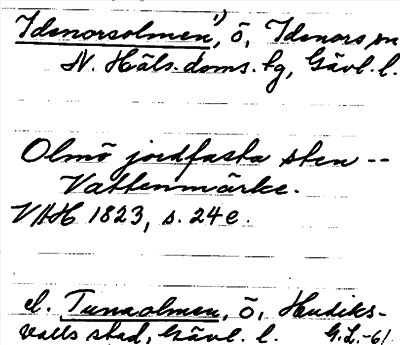 Idenorsolmen,¹) ö, Idenors sn
N. Häls. doms. tg, Gävl. l.
Olmö jordfasta sten --
Vattenmärke.
VAH 1823, s. 24 e.
el. Tunaolmen, ö, Hudiks-
valls stad, Gävl. l. G.L.-61